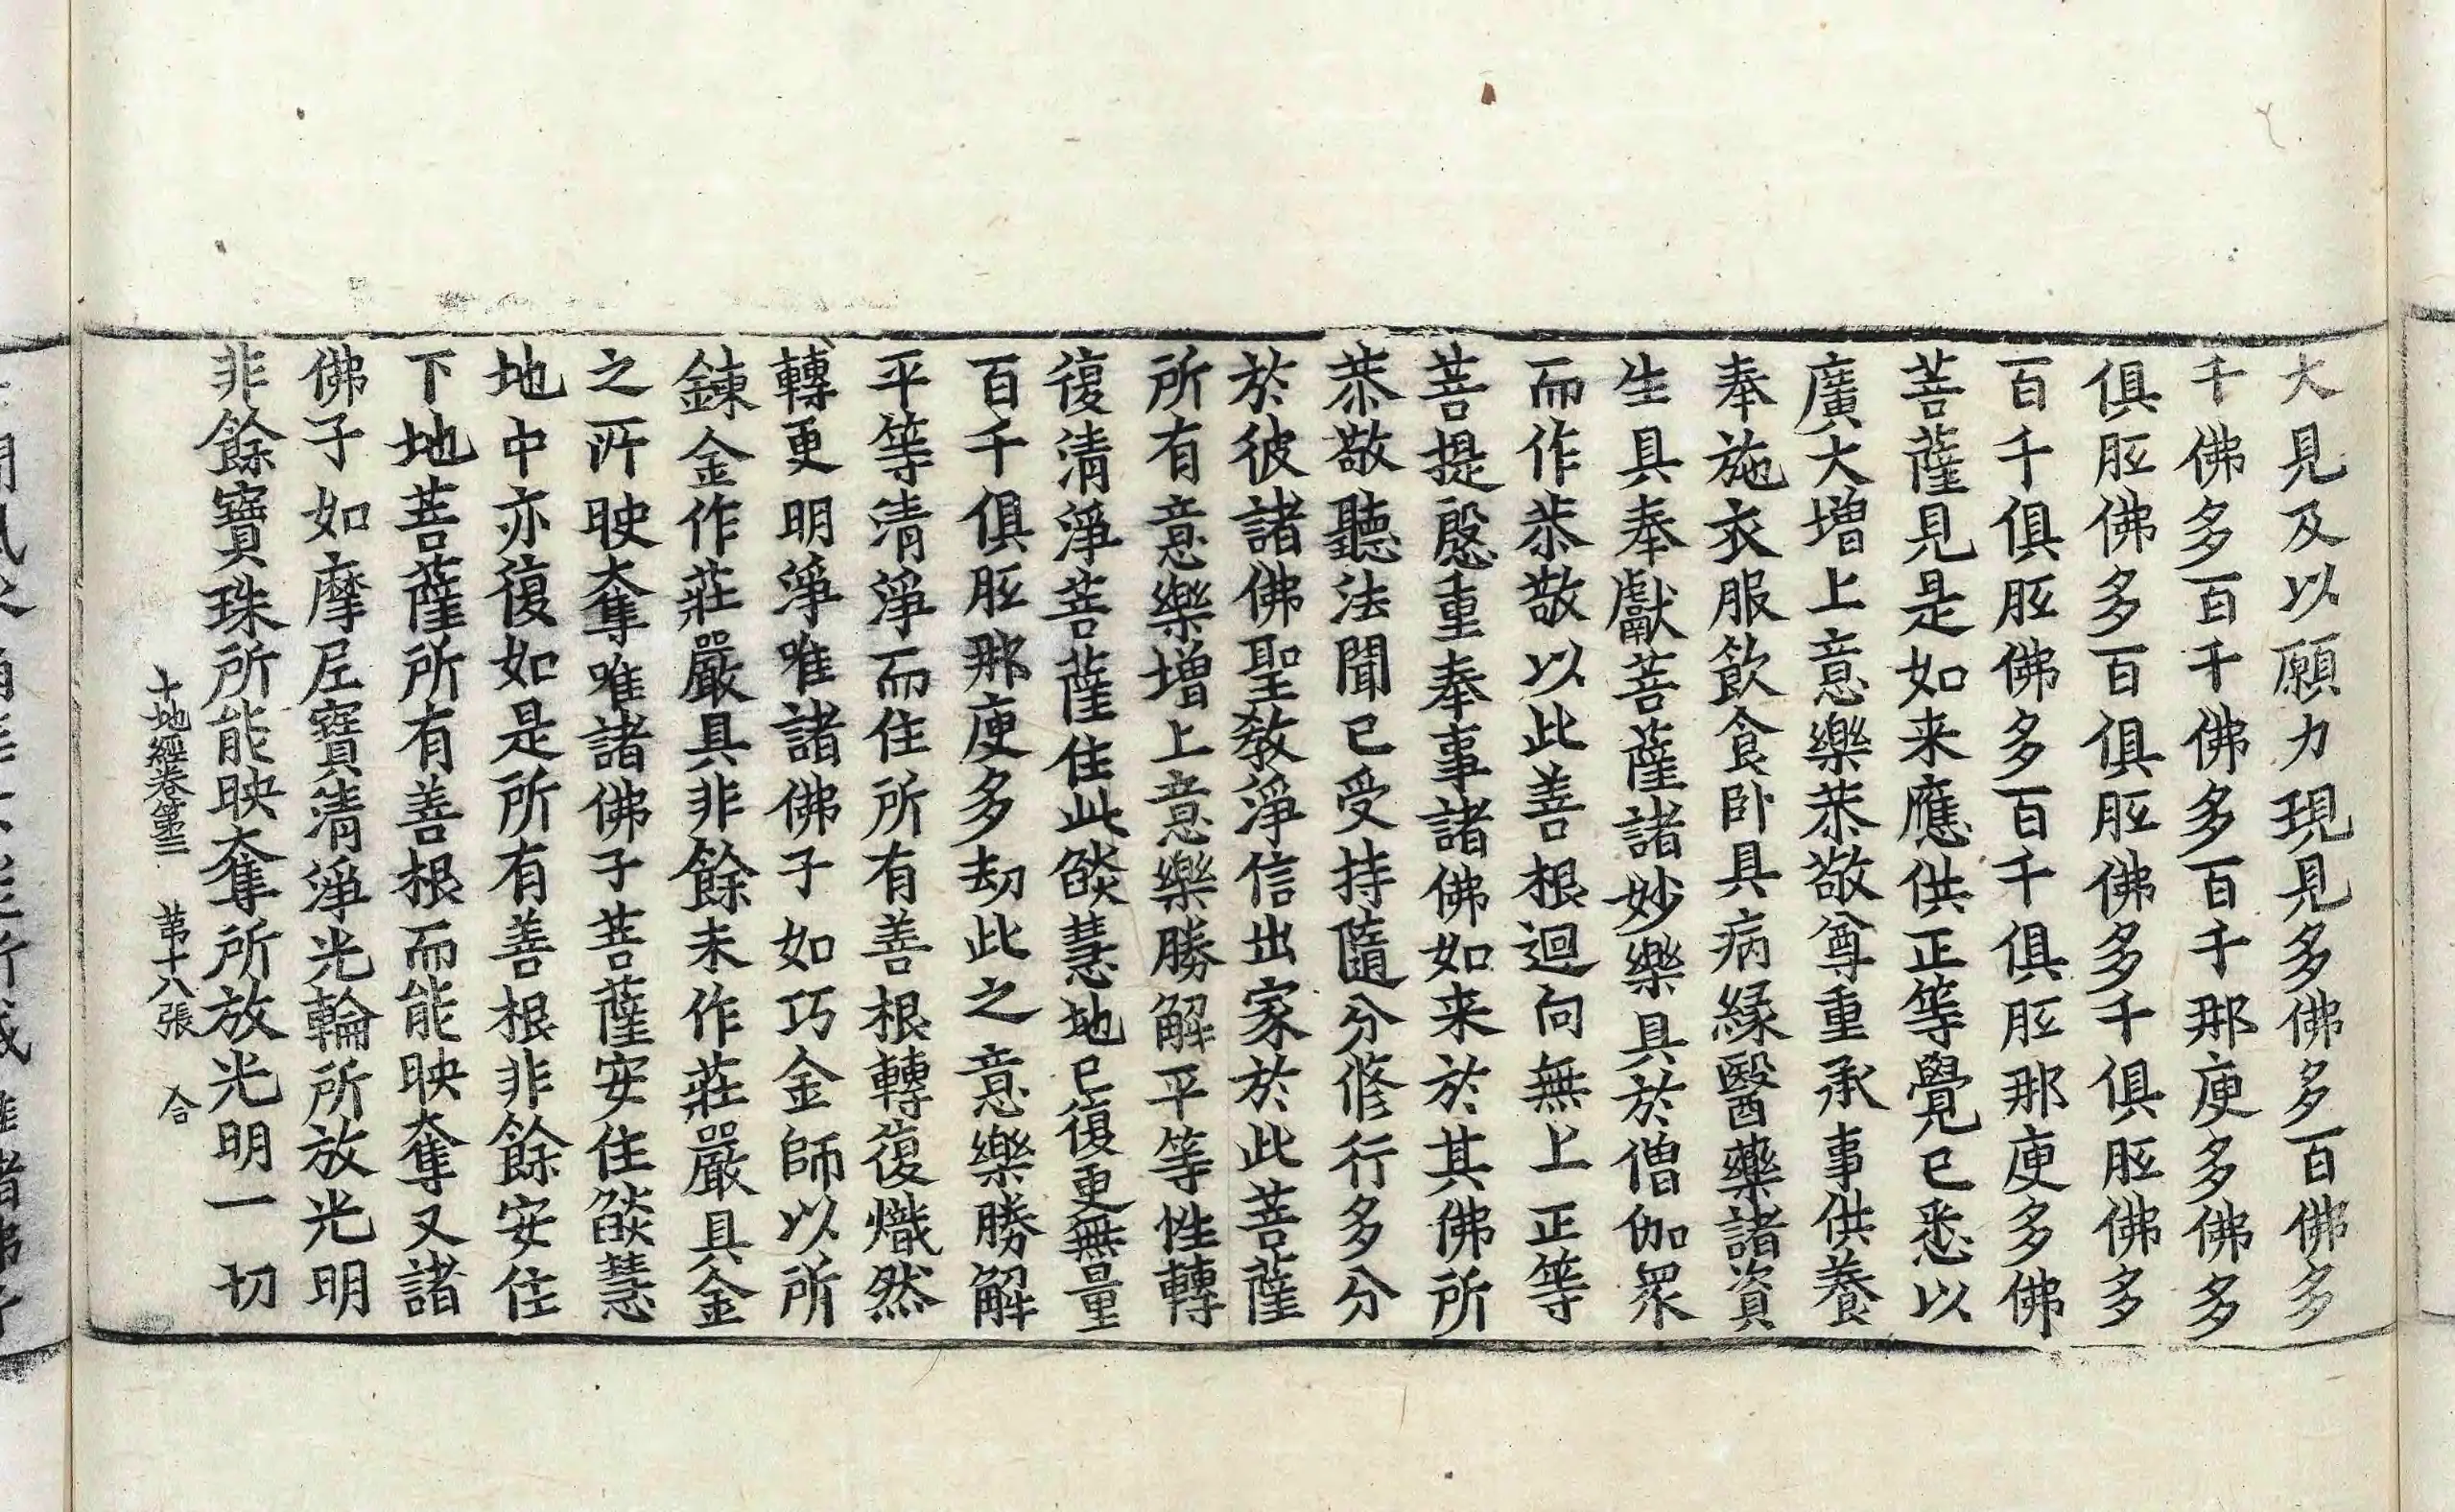 大見及以願力現見多佛多百佛多
千佛多百千佛多百千那庾多佛多
俱胝佛多百俱胝佛多千俱胝佛多
百千俱胝佛多百千俱胝那庾多佛
菩薩見是如来應供正等覺已悉以
廣大增上意樂恭敬尊重承事供養
奉施衣服飲食卧具病緣醫藥諸資
生具奉獻菩薩諸妙樂具於僧伽眾
而作恭敬以此善根迴向無上正等
菩提慇重奉事諸佛如来於其佛所
恭敬聽法聞已受持隨分修行多分
於彼諸佛聖教淨信出家於此菩薩
所有意樂增上意樂勝解平等性轉
復清淨菩薩住此焰慧地已復更無量
百千俱胝那庾多劫此之意樂勝解
平等清淨而住所有善根轉復熾然
轉更明淨唯諸佛子如巧金師以所
鍊金作莊嚴具非餘未作莊嚴具金
之所映奪唯諸佛子菩薩安住焰慧
地中亦復如是所有善根非餘安住
下地菩薩所有善根而能映奪又諸
佛子如摩尼寶清淨光輪所放光明
非餘寶珠所能映奪所放光明一切
十地經卷第三 苐十八張 合